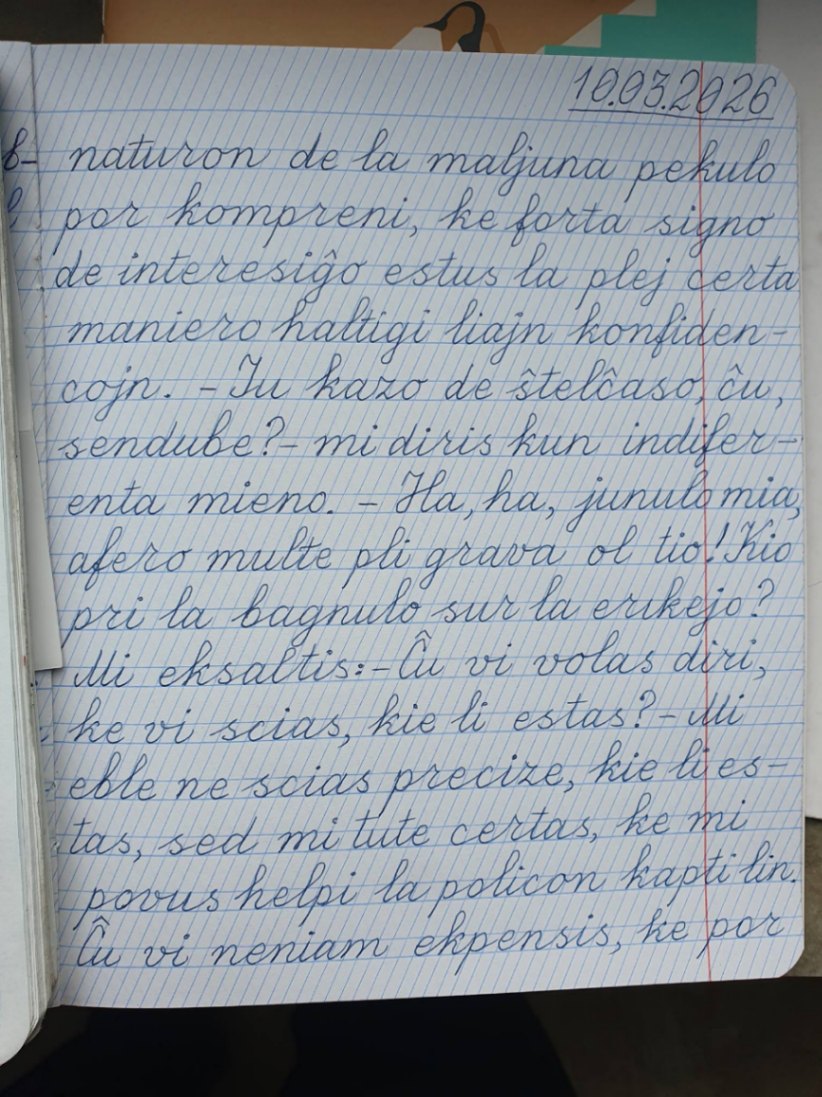 10.03.2026
naturon de la maljuna pekulo
por kompreni, ke forta signo
de interesiĝo estus la plej certa
maniero haltigi liajn konfiden-
cojn. - Iu kazo de ŝtelĉaso, ĉu,
sendube? - mi diris kun indifer-
enta mieno. - Ha, ha, junulo mia,
afero multe pli grava ol tio! Kio
pri la bagnulo sur la erikejo?
Mi eksaltis: - Ĉu vi volas diri,
ke vi scias, kie li estas? - Mi
eble ne scias precize, kie li es-
tas, sed mi tute certas, ke mi
povus helpi la policon kapti lin.
Ĉu vi neniam ekpensis, ke por